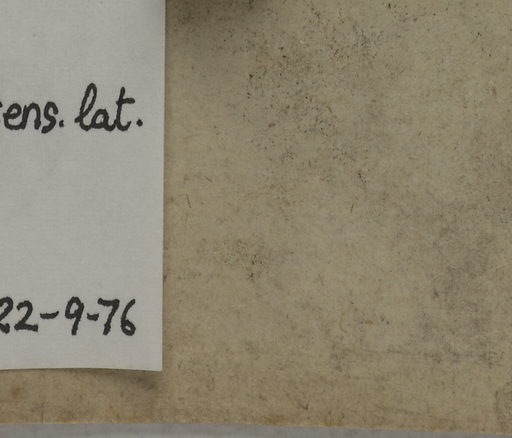 sens. lat.
22-9-76